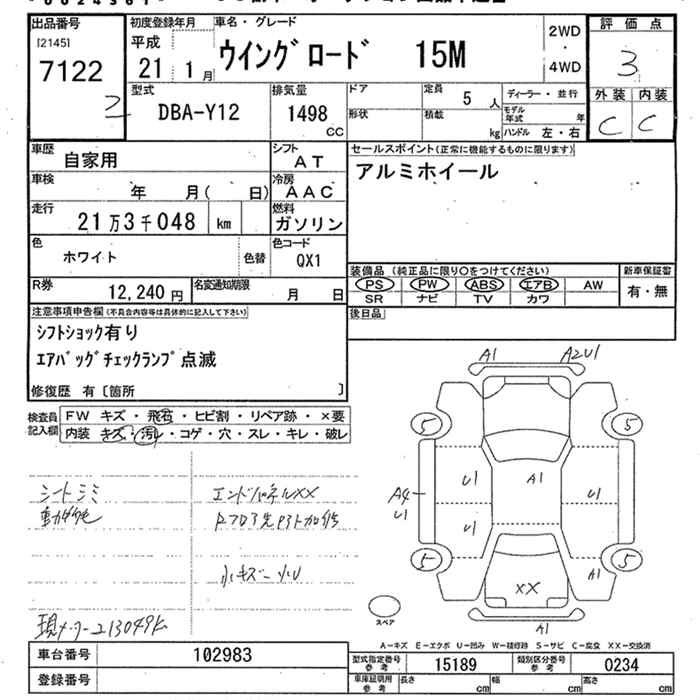 出品番号
[2145]
7122
2
初度登録年月
平成
21 1月
車名・グレード
ウイングロード 15M
2WD
・
4WD
評価点
3
外装 内装
C C
型式
DBA-Y12
排気量
1498
CC
ドア
定員
5 人
ディーラー・並行
形状
積載
kg
モデル年式
年
ハンドル 左・右
車歴
自家用
シフト
AT
セールスポイント(正常に機能するものに限ります)
アルミホイール
車検
年 月( 日)
冷房
AAC
走行
21万3千048 km
燃料
ガソリン
色
ホワイト
色替
色コード
QX1
装備品 (純正品に限り○をつけてください)
PS PW ABS エアB AW
SR ナビ TV カワ
新車保証書
有・無
R券
12,240円
名変通知期限
月 日
後日品
注意事項申告欄(不具合内容等は具体的に記入して下さい)
シフトショック有り
エアバッグチェックランプ点滅
修復歴 有〔箇所 〕
検査員記入欄
FW キズ・飛石・ヒビ割・リペア跡・×要
内装 キズ・汚レ・コゲ・穴・スレ・キレ・破レ
シートシミ
エンドパネルXX
小キズ 小U
現メーター213049K
A1
A2U1
5
5
U1
A1
U1
A4
U1
U1
5
5
A1
XX
スペア
A1
A-キズ E-エクボ U-凹み W-補修跡 S-サビ C-腐食 XX-交換済
車台番号
102983
登録番号
型式指定番号
参考
15189
類別区分番号
参考
0234
車庫証明用
参考
長さ cm
幅 cm
高さ cm